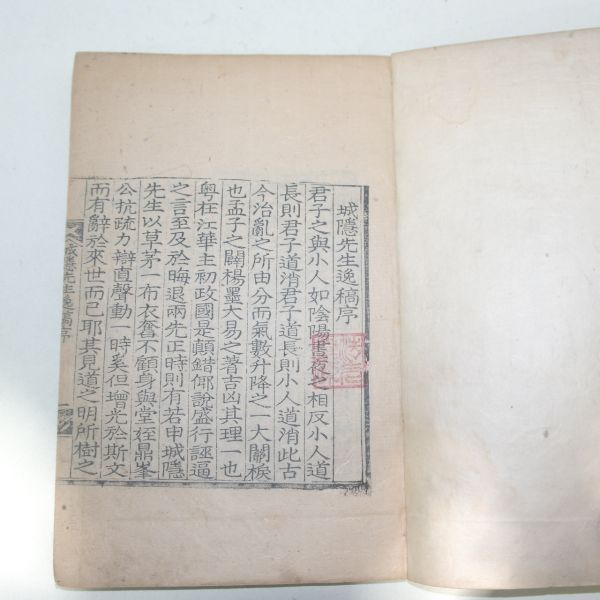 城隱先生逸稿序
君子之與小人如陰陽晝夜之相反小人道
長則君子道消君子道長則小人道消此古
今治亂之所由分而氣數升降之一大關棙
也孟子之闢楊墨大易之著吉凶其理一也
粤在江華主初政國是顛錯邪說盛行誣逼
之言至及於晦退兩先正時則有若申城隱
先生以草茅一布衣奮不顧身與堂姪鼎峯
公抗疏力辯直聲動一時奚但增光於斯文
而有辭於來世而已耶其見道之明所樹之
城隱先生逸稿序
一